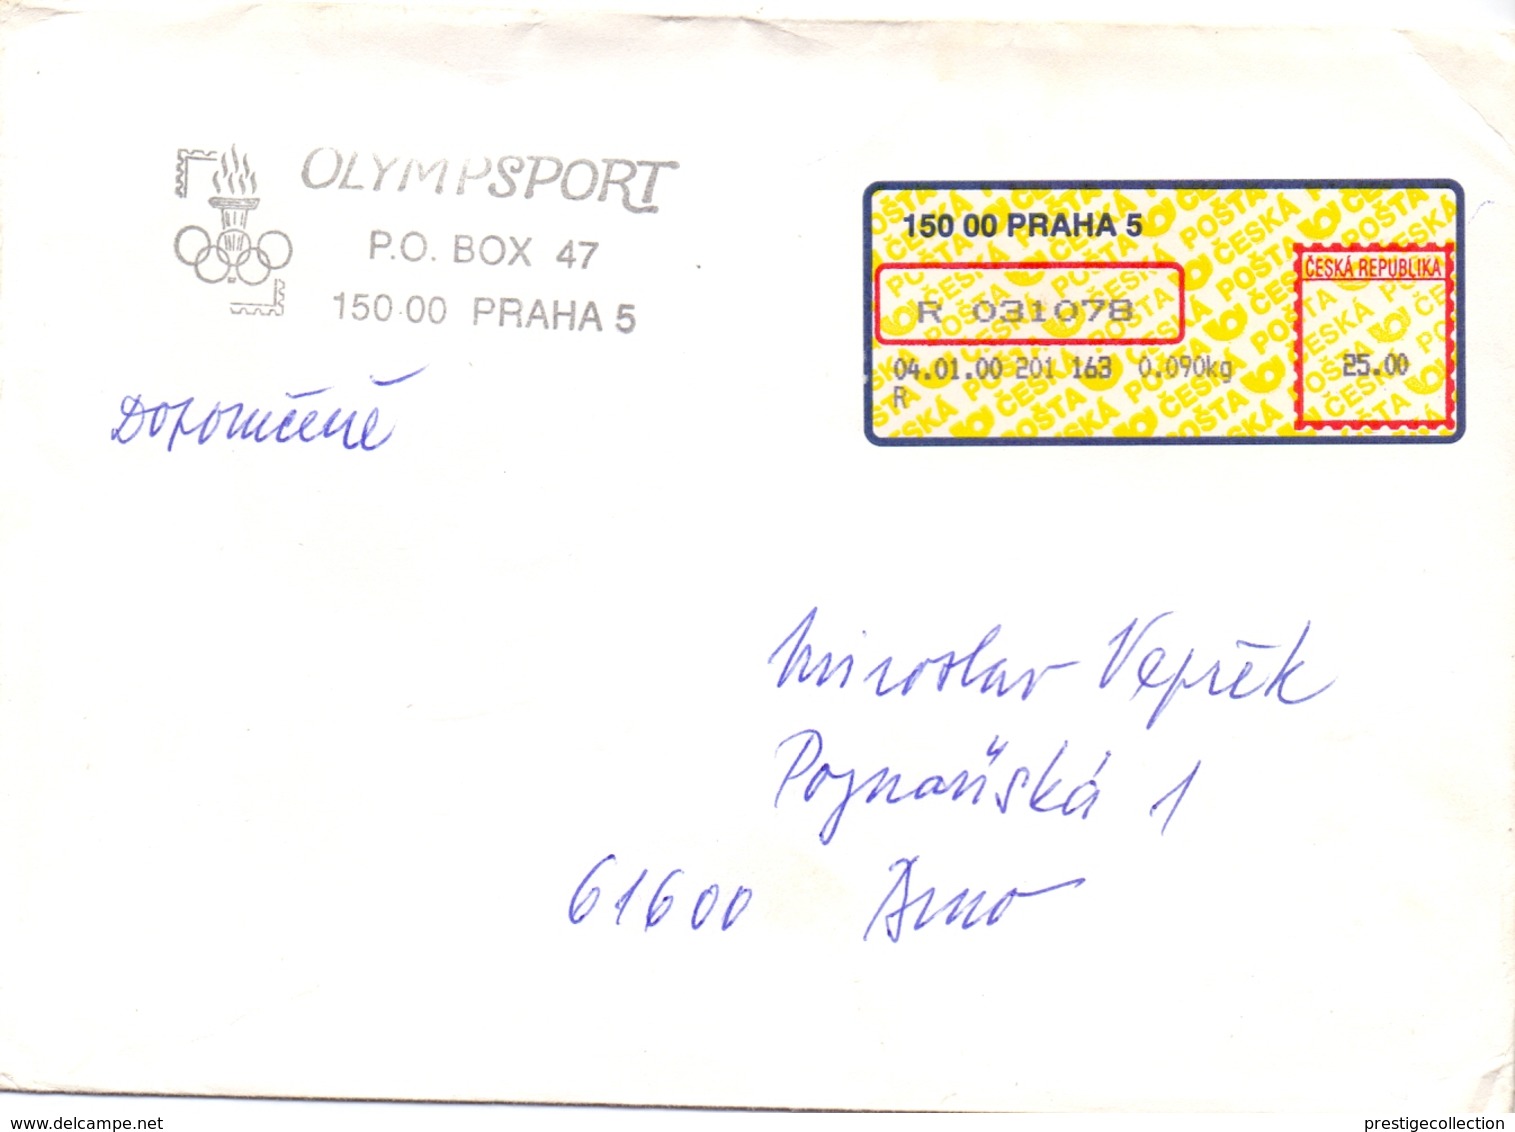 OLYMPSPORT
P.O. BOX 47
150 00 PRAHA 5
150 00 PRAHA 5
ČESKÁ REPUBLIKA
R 031078
04.01.00 201 163 0.090kg
25.00
R
Doporučeně
Miroslav Vepřek
Poznaňská 1
61600 Brno
www.delcampe.net
prestigecollection